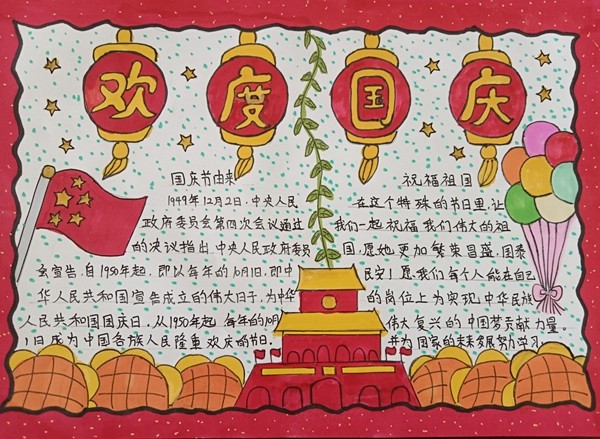 欢度国庆
国庆节由来
1949年12月2日，中央人民
政府委员会第四次会议通过
的决议指出，中央人民政府委员
会宣告，自1950年起，即以每年的10月1日，即中
华人民共和国宣告成立的伟大日子，为中华
人民共和国国庆日。从1950年起，每年的10月
1日成为中国各族人民隆重欢庆的节日。
祝福祖国
在这个特殊的节日里，让
我们一起祝福我们伟大的祖
国，愿她更加繁荣昌盛，国泰
民安！愿我们每个人能在自己
的岗位上为实现中华民族
伟大复兴的中国梦贡献力量。
并为国家的未来努力学习。